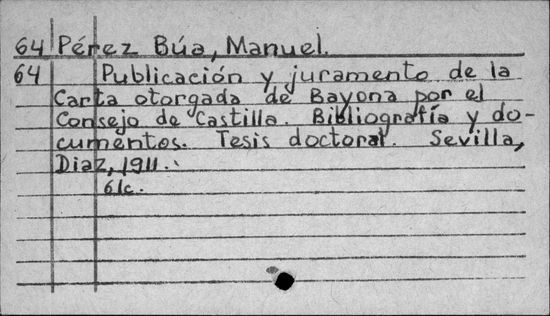 64 Pérez Búa, Manuel.
64 Publicación y juramento de la
Carta otorgada de Bayona por el
Consejo de Castilla. Bibliografía y do-
cumentos. Tesis doctoral. Sevilla,
Diaz, 1911.
61c.